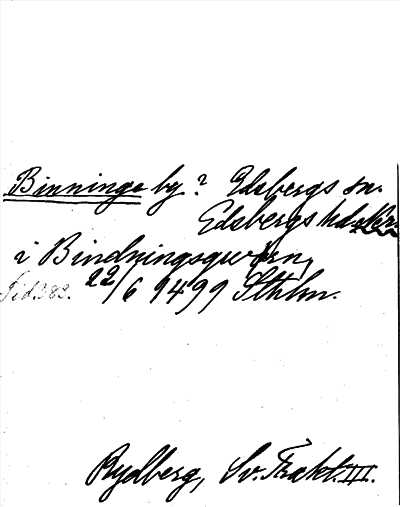 Binninge by? Edsbergs sn.
Edsbergs hd. Nr.
i Bindningsqwern,
Sid. 383. 22/6 1499 Sthlm.
Rydberg, Sv. Trakt. III.